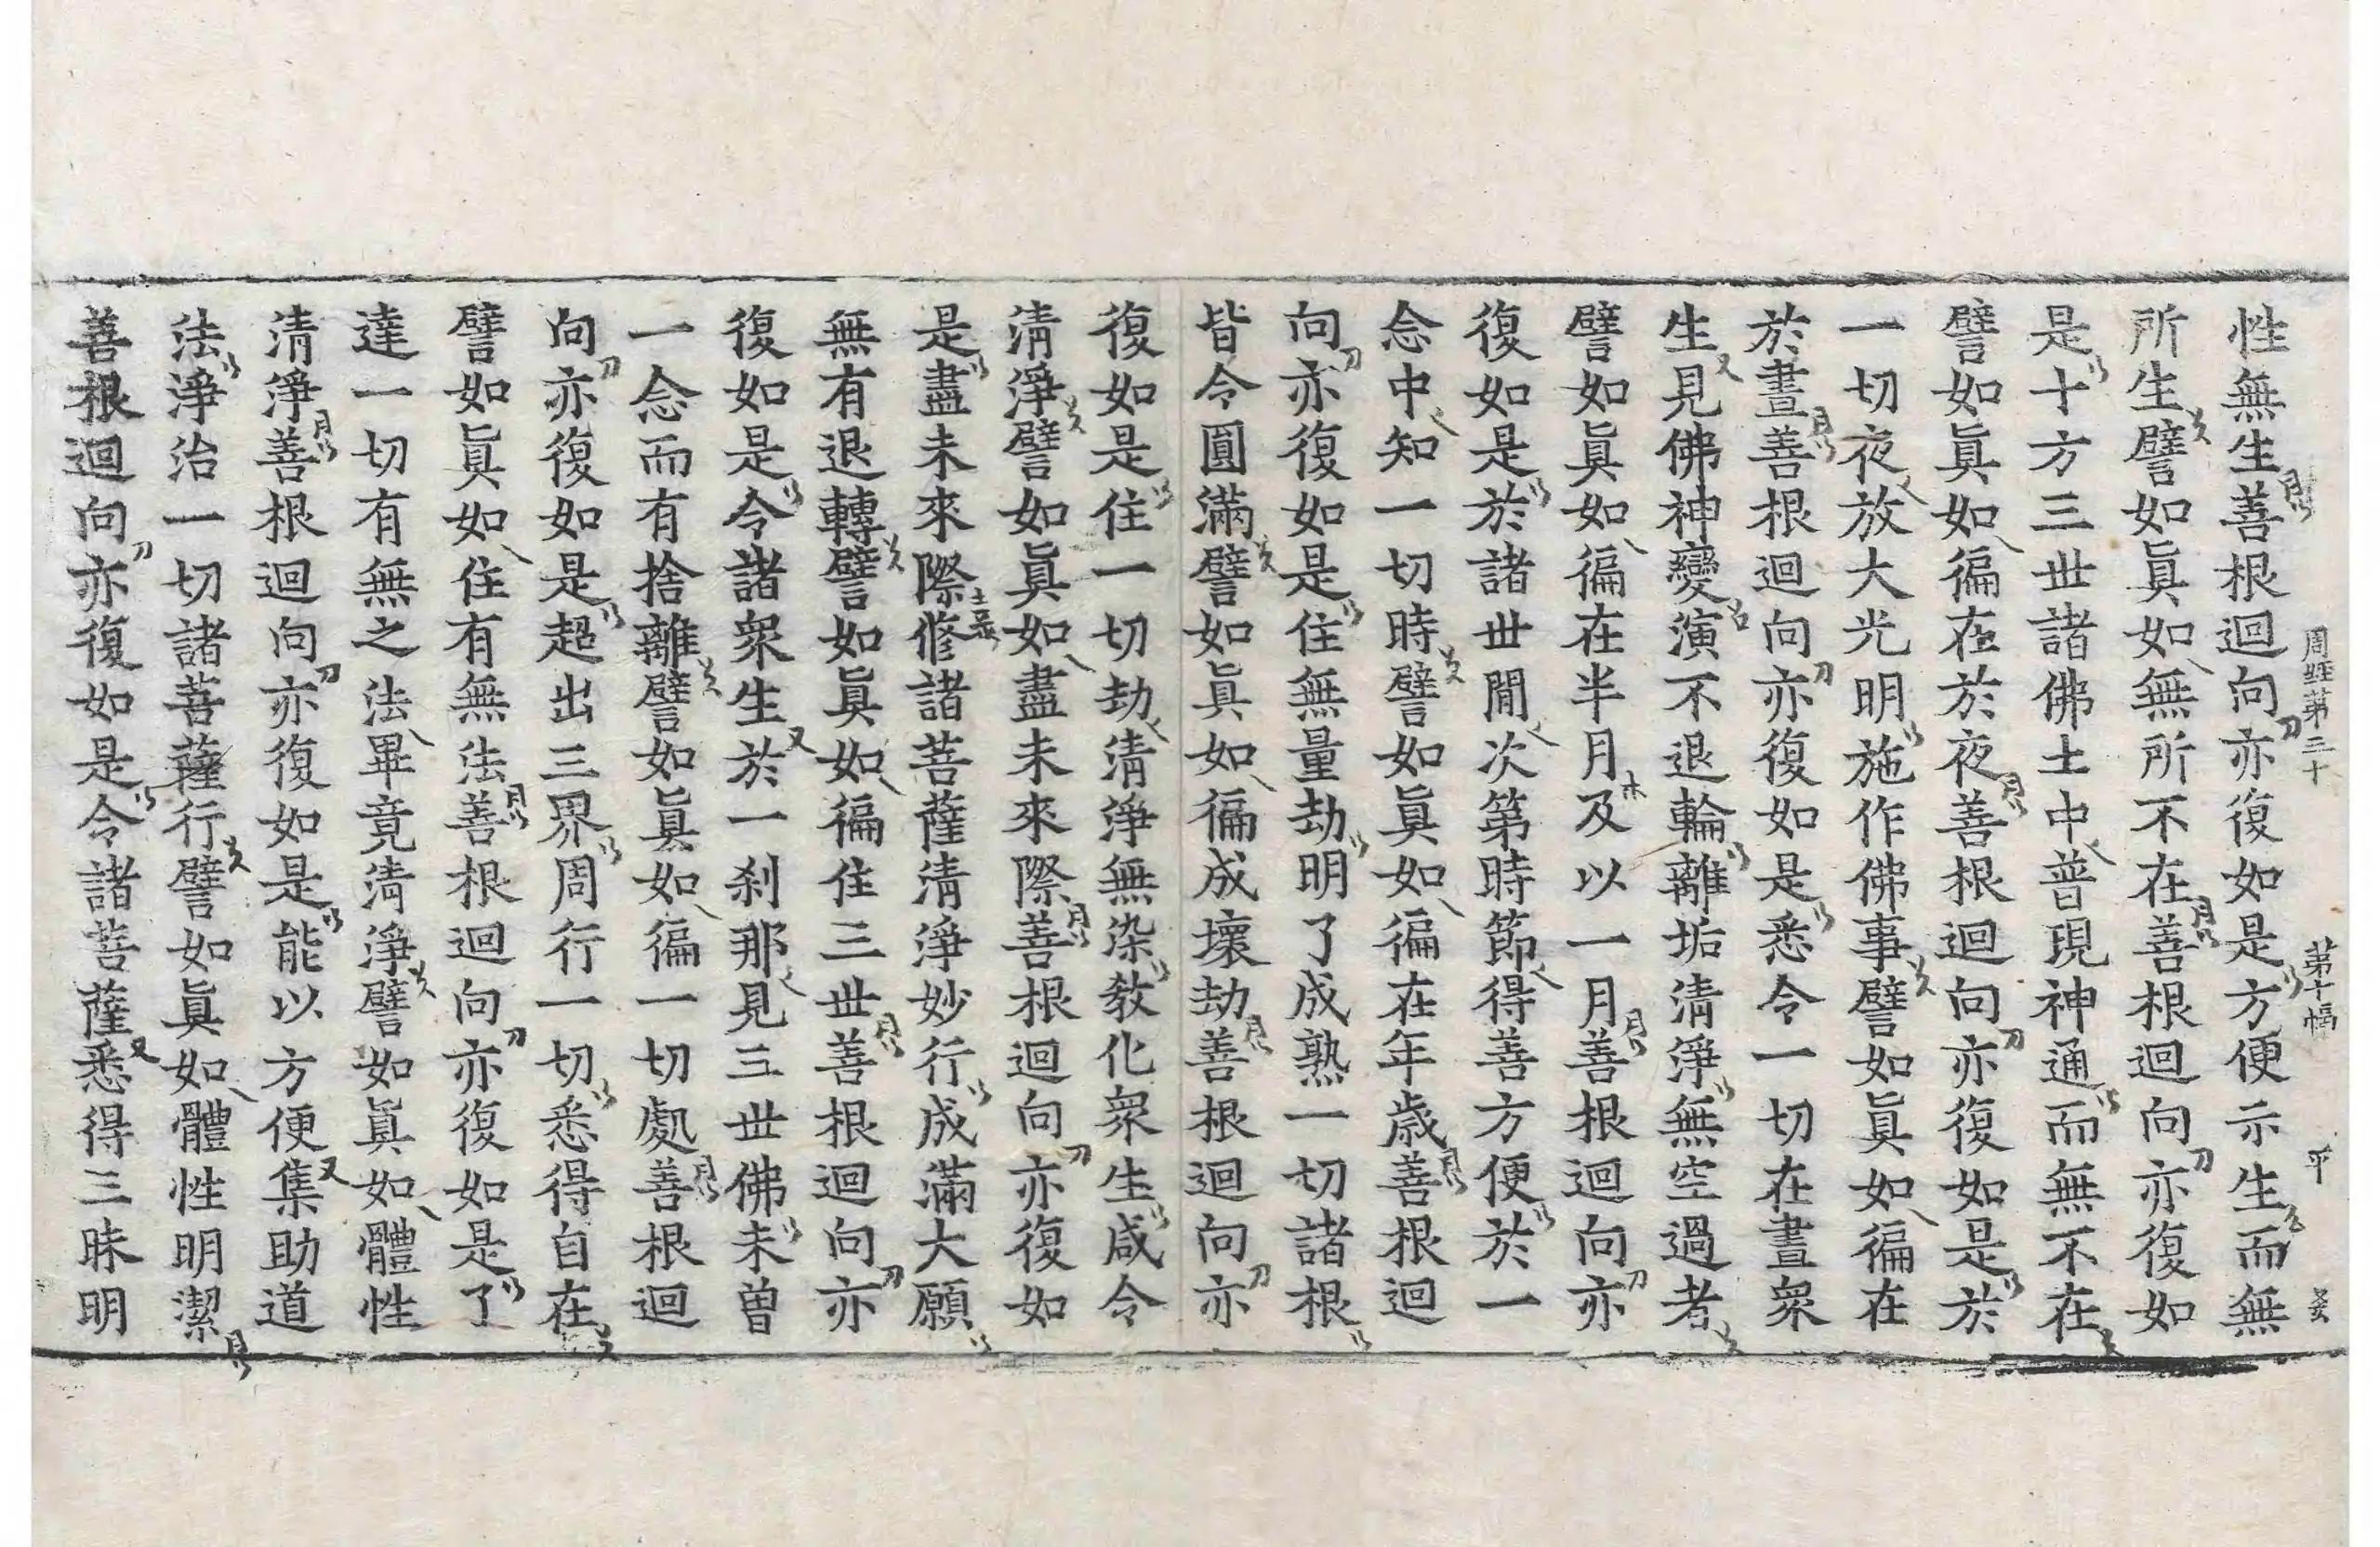 周經第三十 第十幅 平
性無生善根迴向亦復如是方便示生而無
所生譬如眞如無所不在善根迴向亦復如
是十方三世諸佛土中普現神通而無不在
譬如眞如徧在於夜善根迴向亦復如是於
一切夜放大光明施作佛事譬如眞如徧在
於晝善根迴向亦復如是悉令一切在晝衆
生見佛神變演不退輪離垢清淨無空過者
譬如眞如徧在半月及以一月善根迴向亦
復如是於諸世閒次第時節得善方便於一
念中知一切時譬如眞如徧在年歲善根迴
向亦復如是住無量劫明了成熟一切諸根
皆令圓滿譬如眞如徧成壞劫善根迴向亦
復如是住一切劫清淨無染敎化衆生咸令
清淨譬如眞如盡未來際善根迴向亦復如
是盡未來際修諸菩薩清淨妙行成滿大願
無有退轉譬如眞如徧住三世善根迴向亦
復如是令諸衆生於一刹那見三世佛未曾
一念而有捨離譬如眞如徧一切處善根迴
向亦復如是超出三界周行一切悉得自在
譬如眞如住有無法善根迴向亦復如是了
達一切有無之法畢竟清淨譬如眞如體性
清淨善根迴向亦復如是能以方便集助道
法淨治一切諸菩薩行譬如眞如體性明潔
善根迴向亦復如是令諸菩薩悉得三昧明